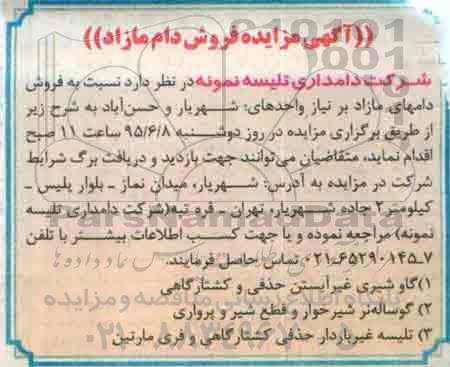 ((آگهی مزایده فروش دام مازاد))
شرکت دامداری تلیسه نمونه در نظر دارد نسبت به فروش
دامهای مازاد بر نیاز واحدهای: شهریار و حسن‌آباد به شرح زیر
از طریق برگزاری مزایده در روز دوشنبه ۹۵/۶/۸ ساعت ۱۱ صبح
اقدام نماید، متقاضیان می‌توانند جهت بازدید و دریافت برگ شرایط
شرکت در مزایده به آدرس: شهریار، میدان نماز ـ بلوار پلیس ـ
کیلومتر ۲ جاده شهریار، تهران ـ قره تپه (شرکت دامداری تلیسه
نمونه) مراجعه نموده و یا جهت کسب اطلاعات بیشتر با تلفن
۷ـ۶۵۲۹۰۱۴۵ـ۰۲۱ تماس حاصل فرمایند.
۱) گاو شیری غیرآبستن حذفی و کشتارگاهی
۲) گوساله‌نر شیرخوار و قطع شیر و پرواری
۳) تلیسه غیرباردار حذفی کشتارگاهی و فری مارتین